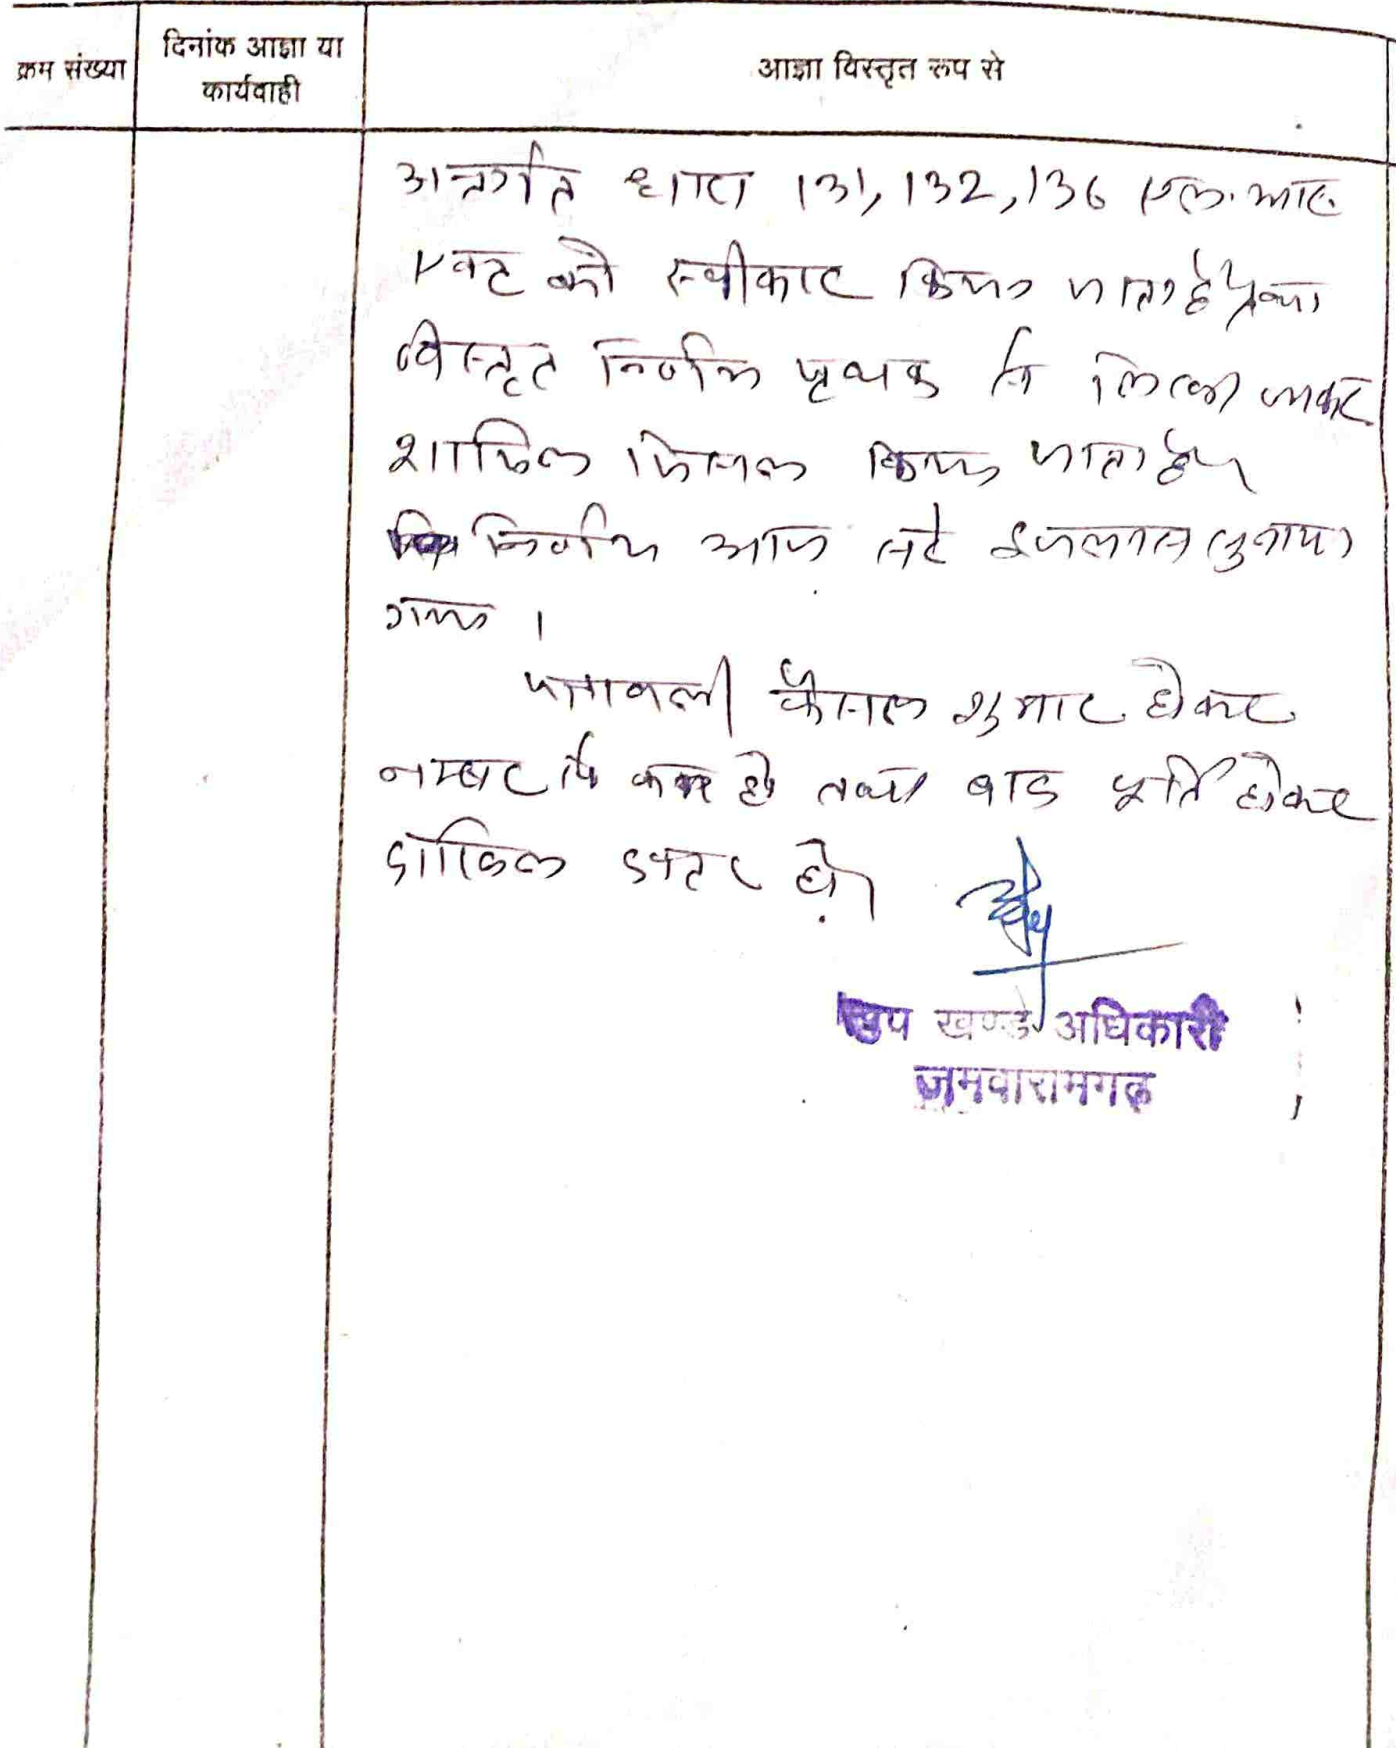 क्रम संख्या
दिनांक आज्ञा या
कार्यवाही
आज्ञा विस्तृत रूप से
अन्तर्गत धारा 131, 132, 136 एल. आर.
एक्ट को स्वीकार किया जाता है
विस्तृत निर्णय पृथक से लिखा जाकर
शामिल मिसल किया जाता है।
निर्णय आज सरे इजलास सुनाया
गया ।
पत्रावली फैसल शुमार होकर
नम्बर से कम हो तथा बाद पूर्ति होकर
दाखिल दफ्तर हो।
उप खण्ड अधिकारी
जमवारामगढ़